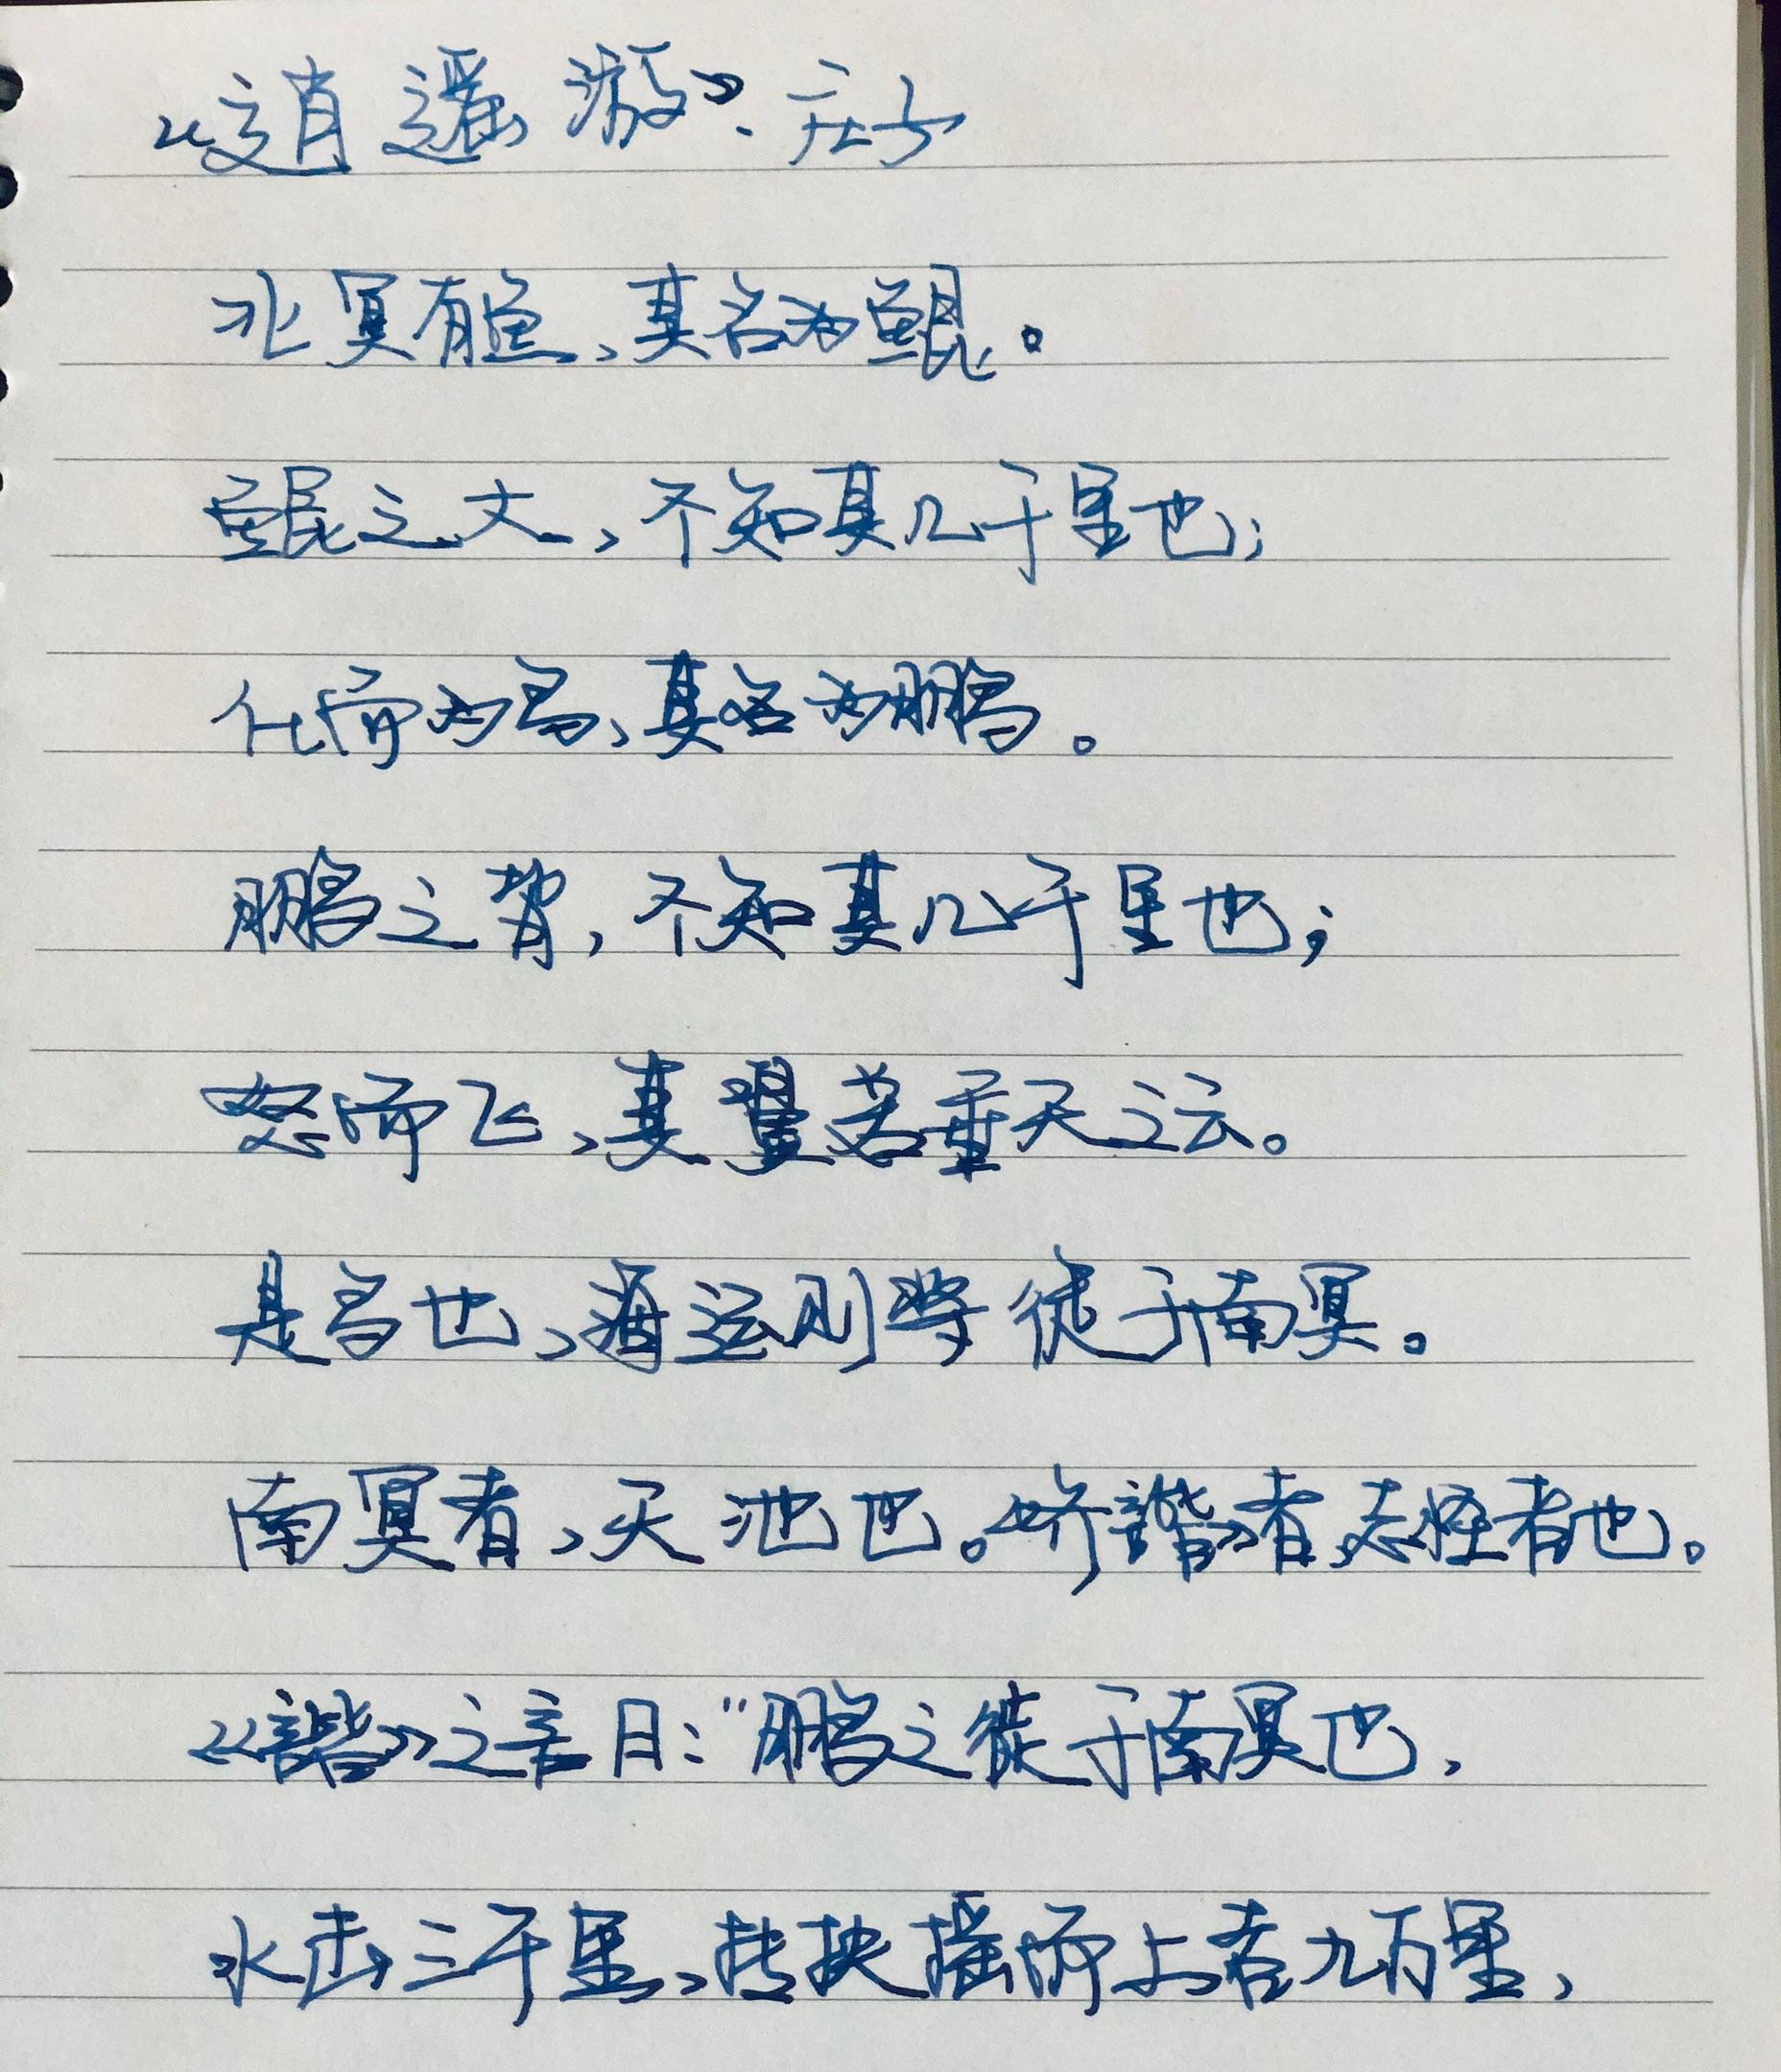 《逍遥游》、庄子
北冥有鱼，其名为鲲。
鲲之大，不知其几千里也；
化而为鸟，其名为鹏。
鹏之背，不知其几千里也；
怒而飞，其翼若垂天之云。
是鸟也，海运则将徙于南冥。
南冥者，天池也。《齐諧》者，志怪者也。
《諧》之言曰："鹏之徙于南冥也，
水击三千里，抟扶摇而上者九万里，